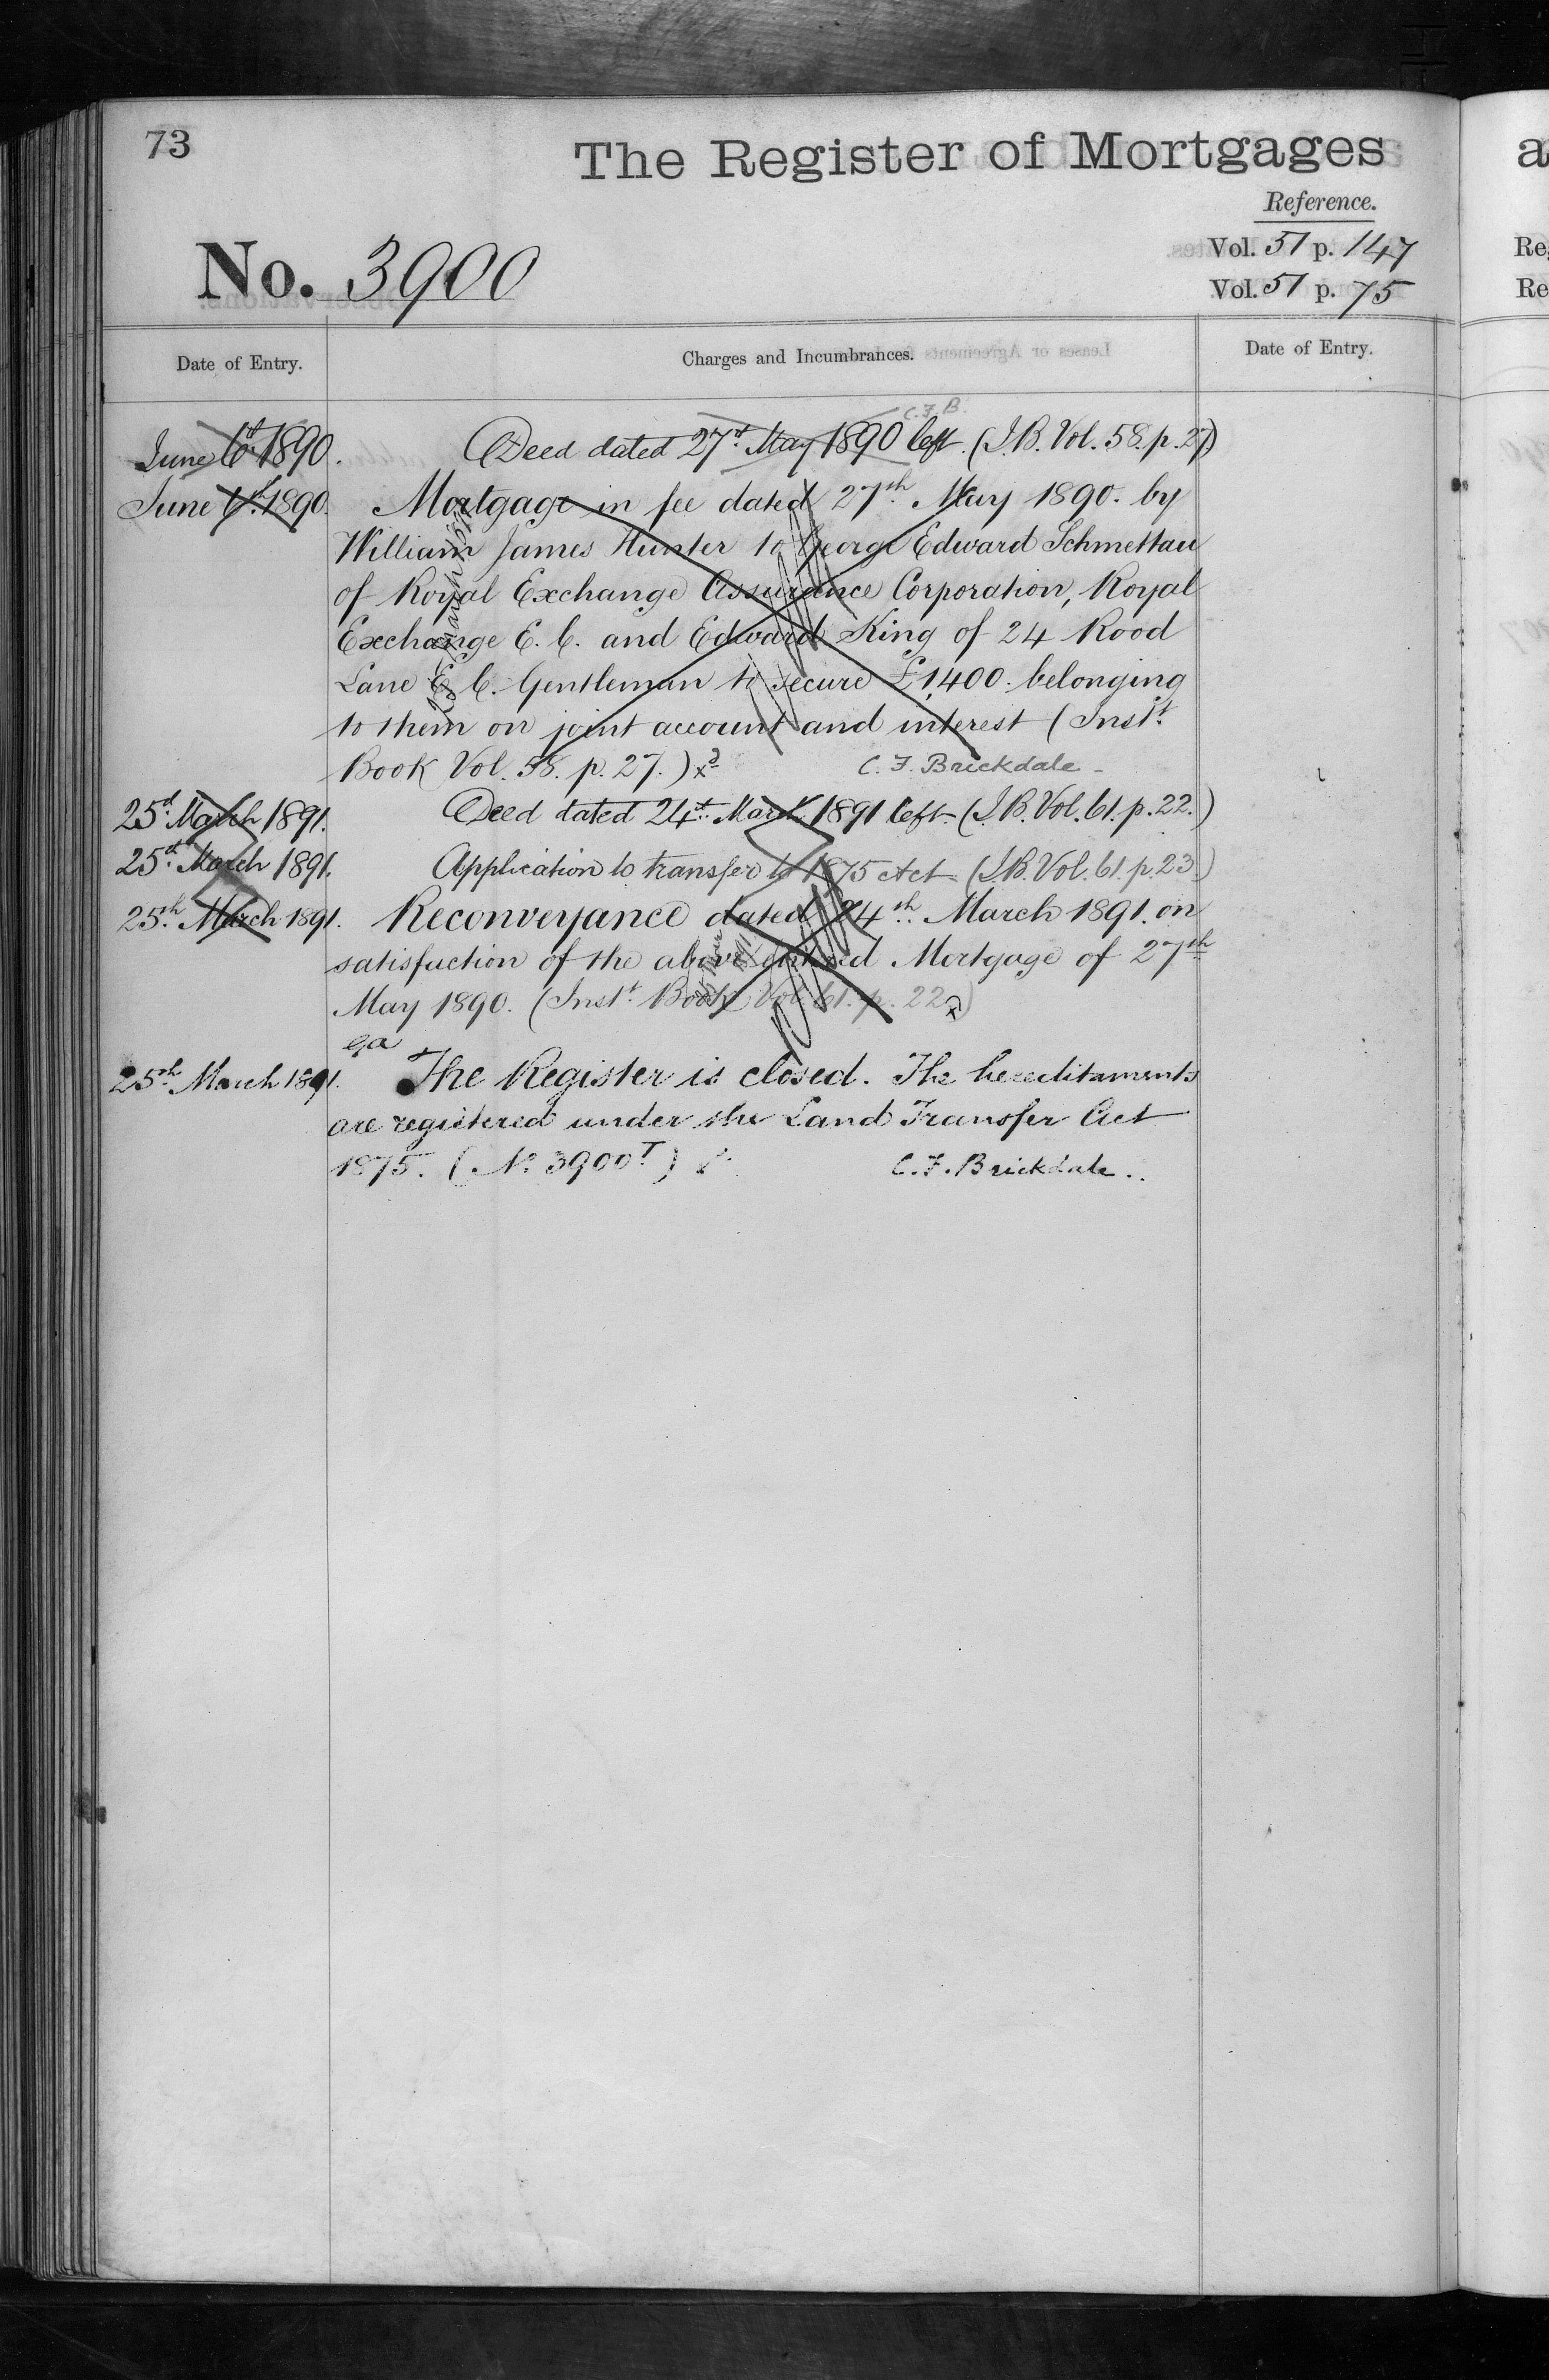 73
The Register of Mortgages
Reference.
No. 3900
Vol. 51 p. 147
Vol. 51 p. 75
Date of Entry.
Charges and Incumbrances.
Date of Entry.
C. F. B.
June 6th 1890. Deed dated 27th May 1890 left. (I.B. Vol. 58. p. 27)
June 6th 1890. Mortgage in fee dated 27th May 1890. by
William James Hunter to George Edward Schmettau
of Royal Exchange Assurance Corporation, Royal
Exchange E. C. and Edward King of 24 Rood
Lane E. C. Gentleman to secure £1,400: belonging
to them on joint account and interest (Inst.t
Book Vol. 58. p. 27.)
C. F. Brickdale
25th March 1891. Deed dated 24th March 1891 left. (I.B. Vol. 61. p. 22.)
25th March 1891. Application to transfer to 1875 Act. (I.B. Vol. 61. p. 23.)
25th March 1891. Reconveyance dated 24th March 1891. on
satisfaction of the above entered Mortgage of 27th
May 1890. (Inst.t Book Vol. 61. p. 22)
25th March 1891. The Register is closed. The hereditaments
are registered under the Land Transfer Act
1875. (No 3900T)
C. F. Brickdale.
a
Re
Re